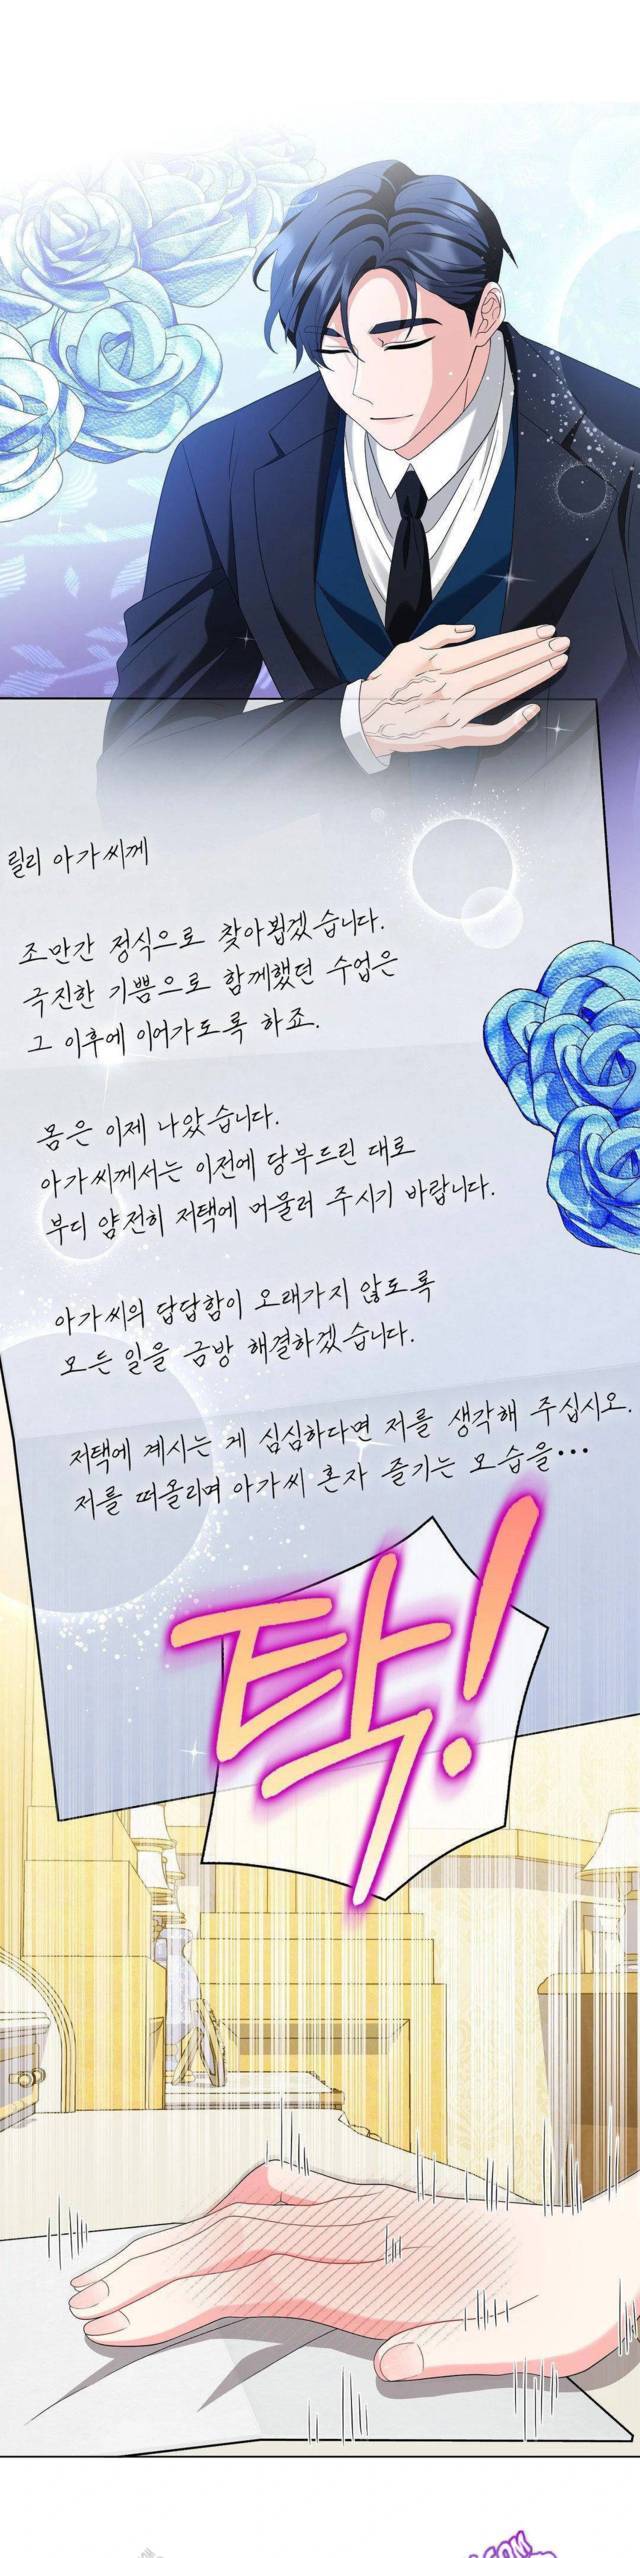 릴리 아가씨께
조만간 정식으로 찾아뵙겠습니다.
극진한 기쁨으로 함께했던 수업은
그 이후에 이어가도록 하죠.
몸은 이제 나았습니다.
아가씨께서는 이전에 당부드린 대로
부디 얌전히 저택에 머물러 주시기 바랍니다.
아가씨의 답답함이 오래가지 않도록
모든 일을 금방 해결하겠습니다.
저택에 계시는 게 심심하다면 저를 생각해 주십시오.
저를 떠올리며 아가씨 혼자 즐기는 모습을…
탁!